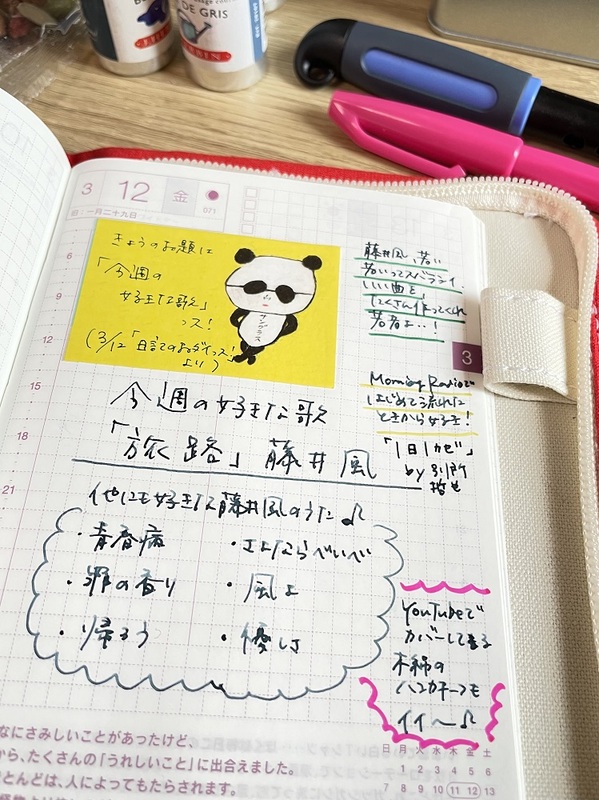 DE GRIS
3 12 金
071
一月二十九日
6
9
12
15
18
21
きょうのお題は
「今週の
好きな歌」
っス!
(3/12「日言てのおダイっス!」
より)
サングラス
藤井風、若い
若いってスバラシイ
いい曲を
たくさん作ってくれ
若者よ・・!
3
Morning Radioで
はじめて流れた
ときから好き!
「1日1カゼ」
by 別所
哲也
今週の好きな歌
「旅路」藤井風
他にも好きな藤井風のうた♪
・青春病
・さよならべいべ
・罪の香り
・風よ
・帰ろう
・優しさ
YouTubeで
カバーしてる
木綿の
ハンカチーフも
イイ〜♪
なにさみしいことがあったけど、
から、たくさんの「うれしいこと」に出合えました。
とんどは、人によってもたらされます。
日 月 火 水 木 金 土
1 2 3 4 5 6
7 8 9 10 11 12 13